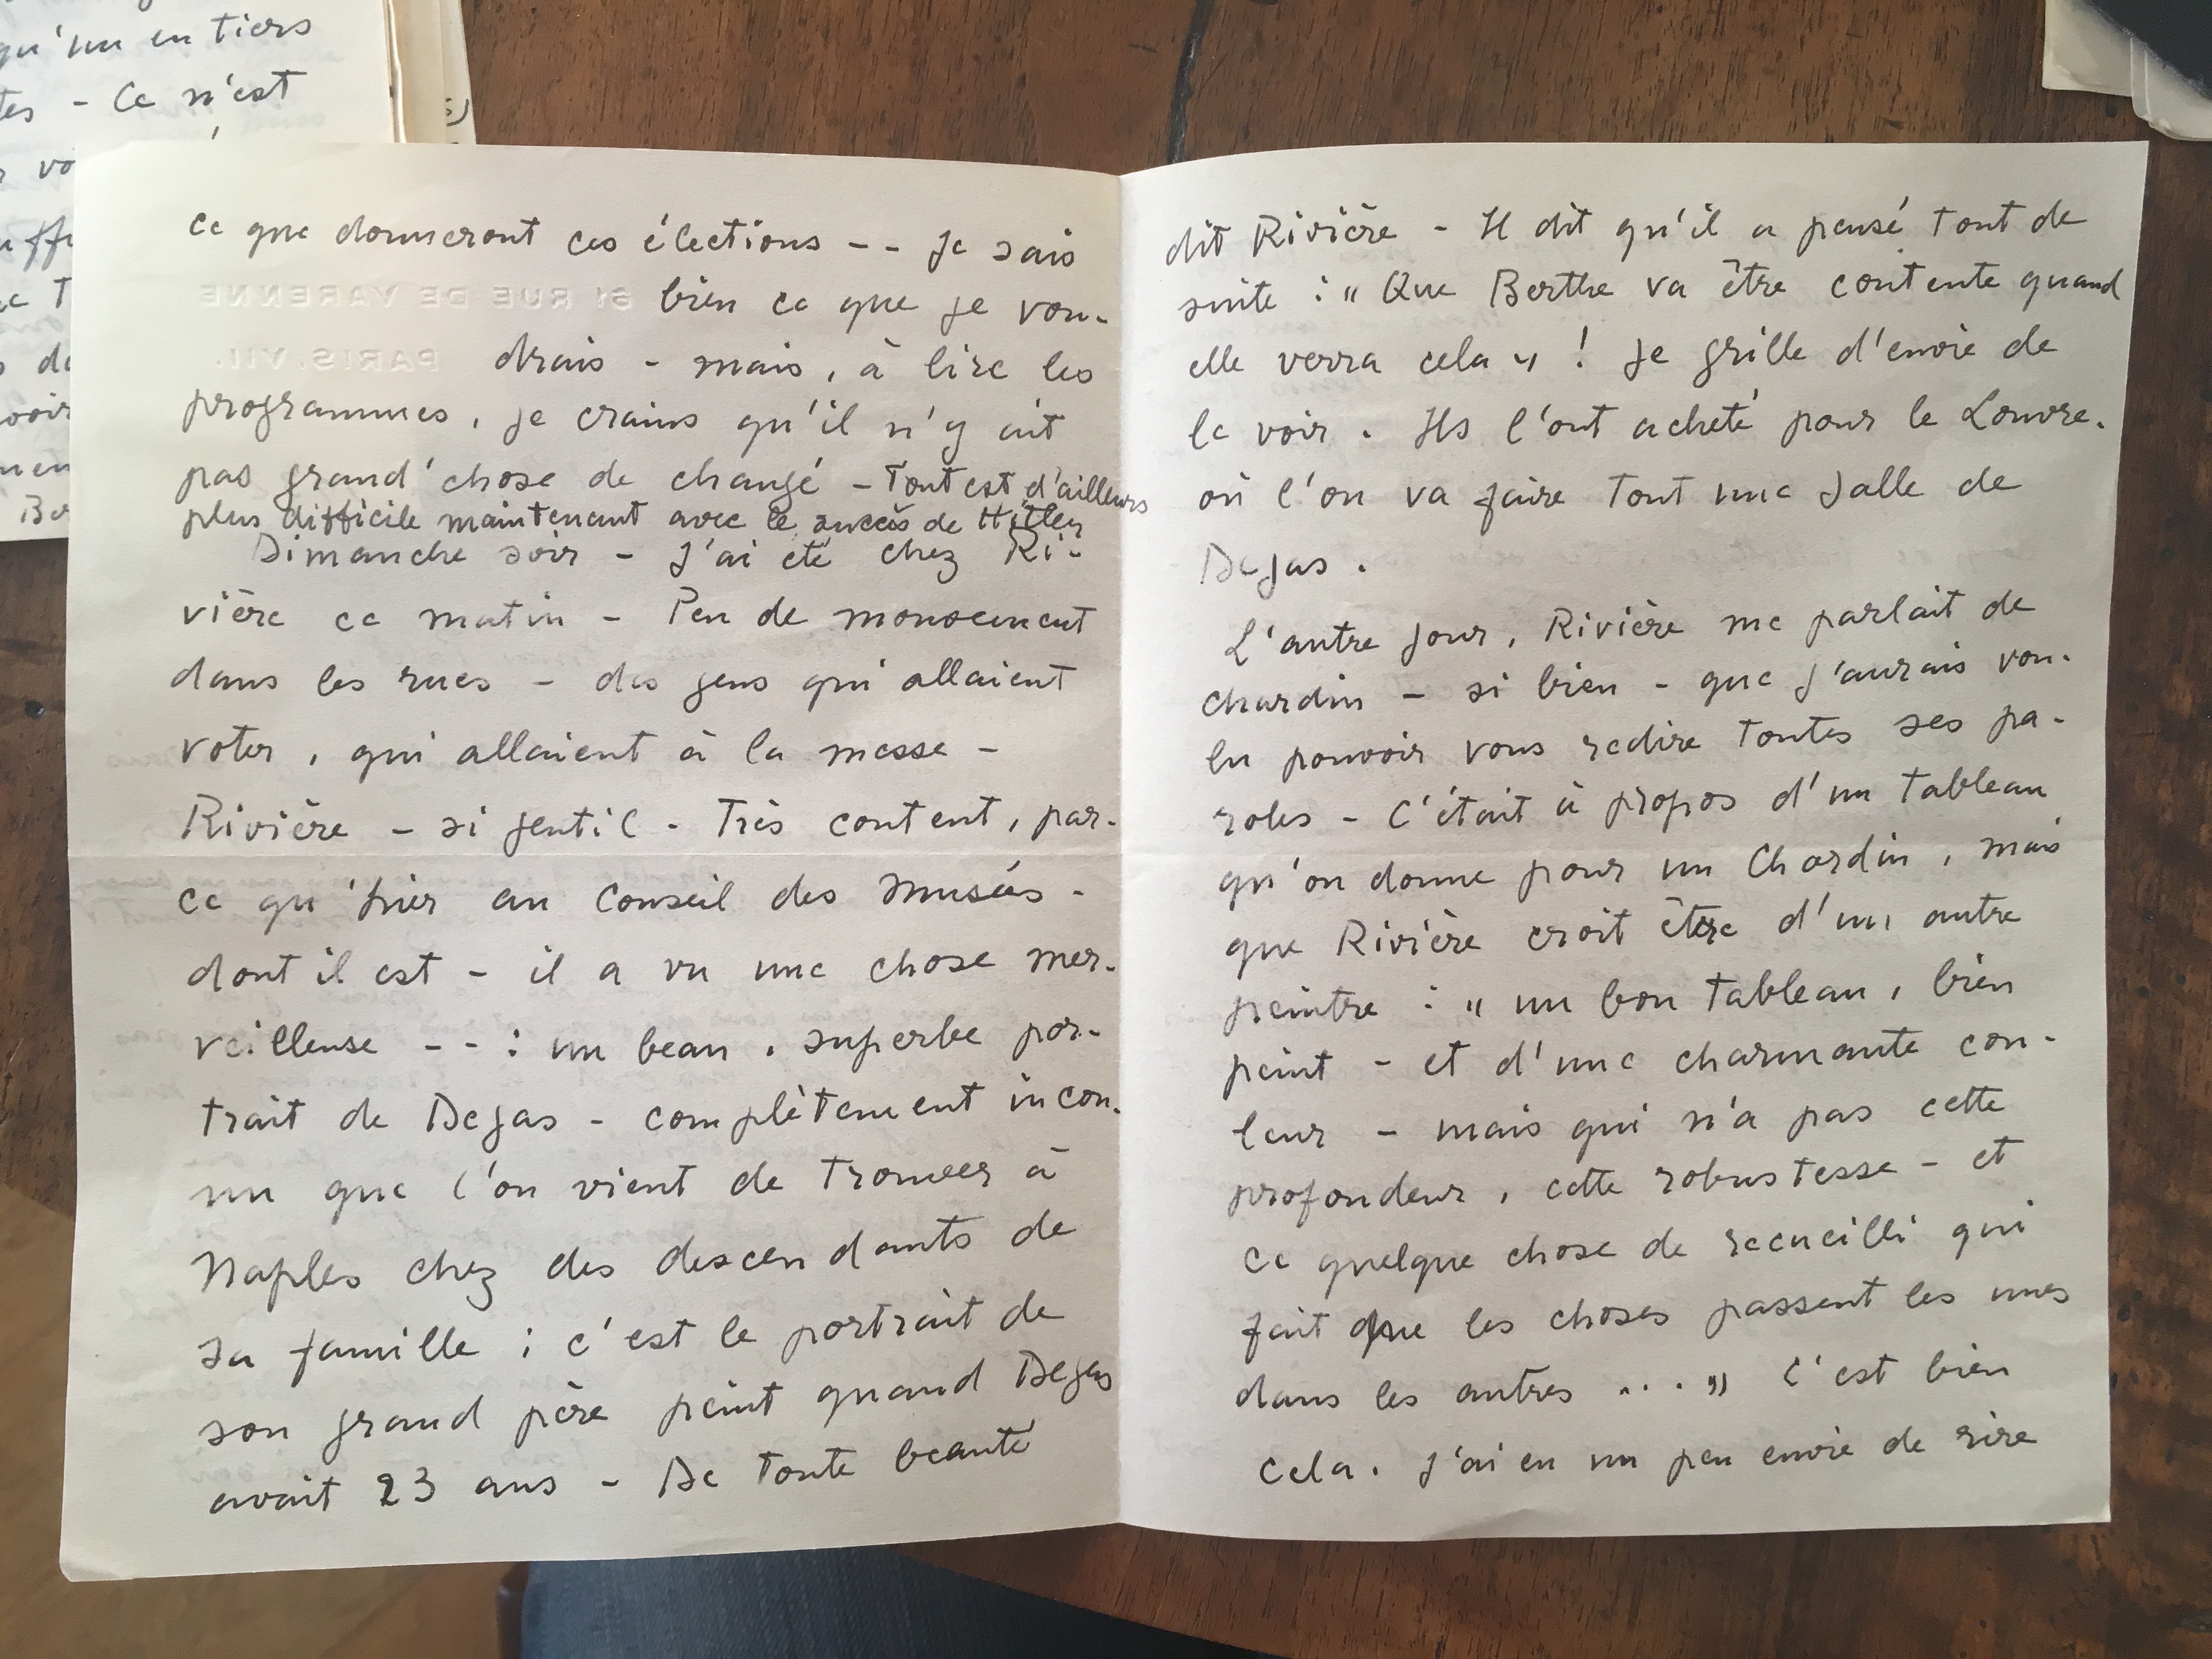 qu'un en tiers
tes - Ce n'est
vo
ce que donneront ces élections -- Je sais
61 RUE DE VARENNE
bien ce que je vou-
PARIS. VII.
drais - mais, à lire les
programmes, je crains qu'il n'y ait
pas grand'chose de changé - Tout est d'ailleurs
plus difficile maintenant avec le succès de Hitler
Dimanche soir - J'ai été chez Ri-
vière ce matin - Peu de mouvement
dans les rues - des gens qui allaient
voter, qui allaient à la messe -
Rivière - si gentil - Très content, par-
ce qu'hier au Conseil des Musées -
dont il est - il a vu une chose mer-
veilleuse -- : un beau, superbe por-
trait de Degas - complètement incon-
nu que l'on vient de trouver à
Naples chez des descendants de
sa famille ; c'est le portrait de
son grand père peint quand Degas
avait 23 ans - De toute beauté
dit Rivière - Il dit qu'il a pensé tout de
suite : " Que Berthe va être contente quand
elle verra cela " ! Je grille d'envie de
le voir. Ils l'ont acheté pour le Louvre.
où l'on va faire tout une Salle de
Degas.
L'autre jour, Rivière me parlait de
Chardin - si bien - que j'aurais vou-
lu pouvoir vous redire toutes ses pa-
roles - C'était à propos d'un tableau
qu'on donne pour un Chardin, mais
que Rivière croit être d'un autre
peintre : " un bon tableau, bien
peint - et d'une charmante cou-
leur - mais qui n'a pas cette
profondeur, cette robustesse - et
ce quelque chose de recueilli qui
fait que les choses passent les unes
dans les autres ... " C'est bien
cela. J'ai eu un peu envie de rire